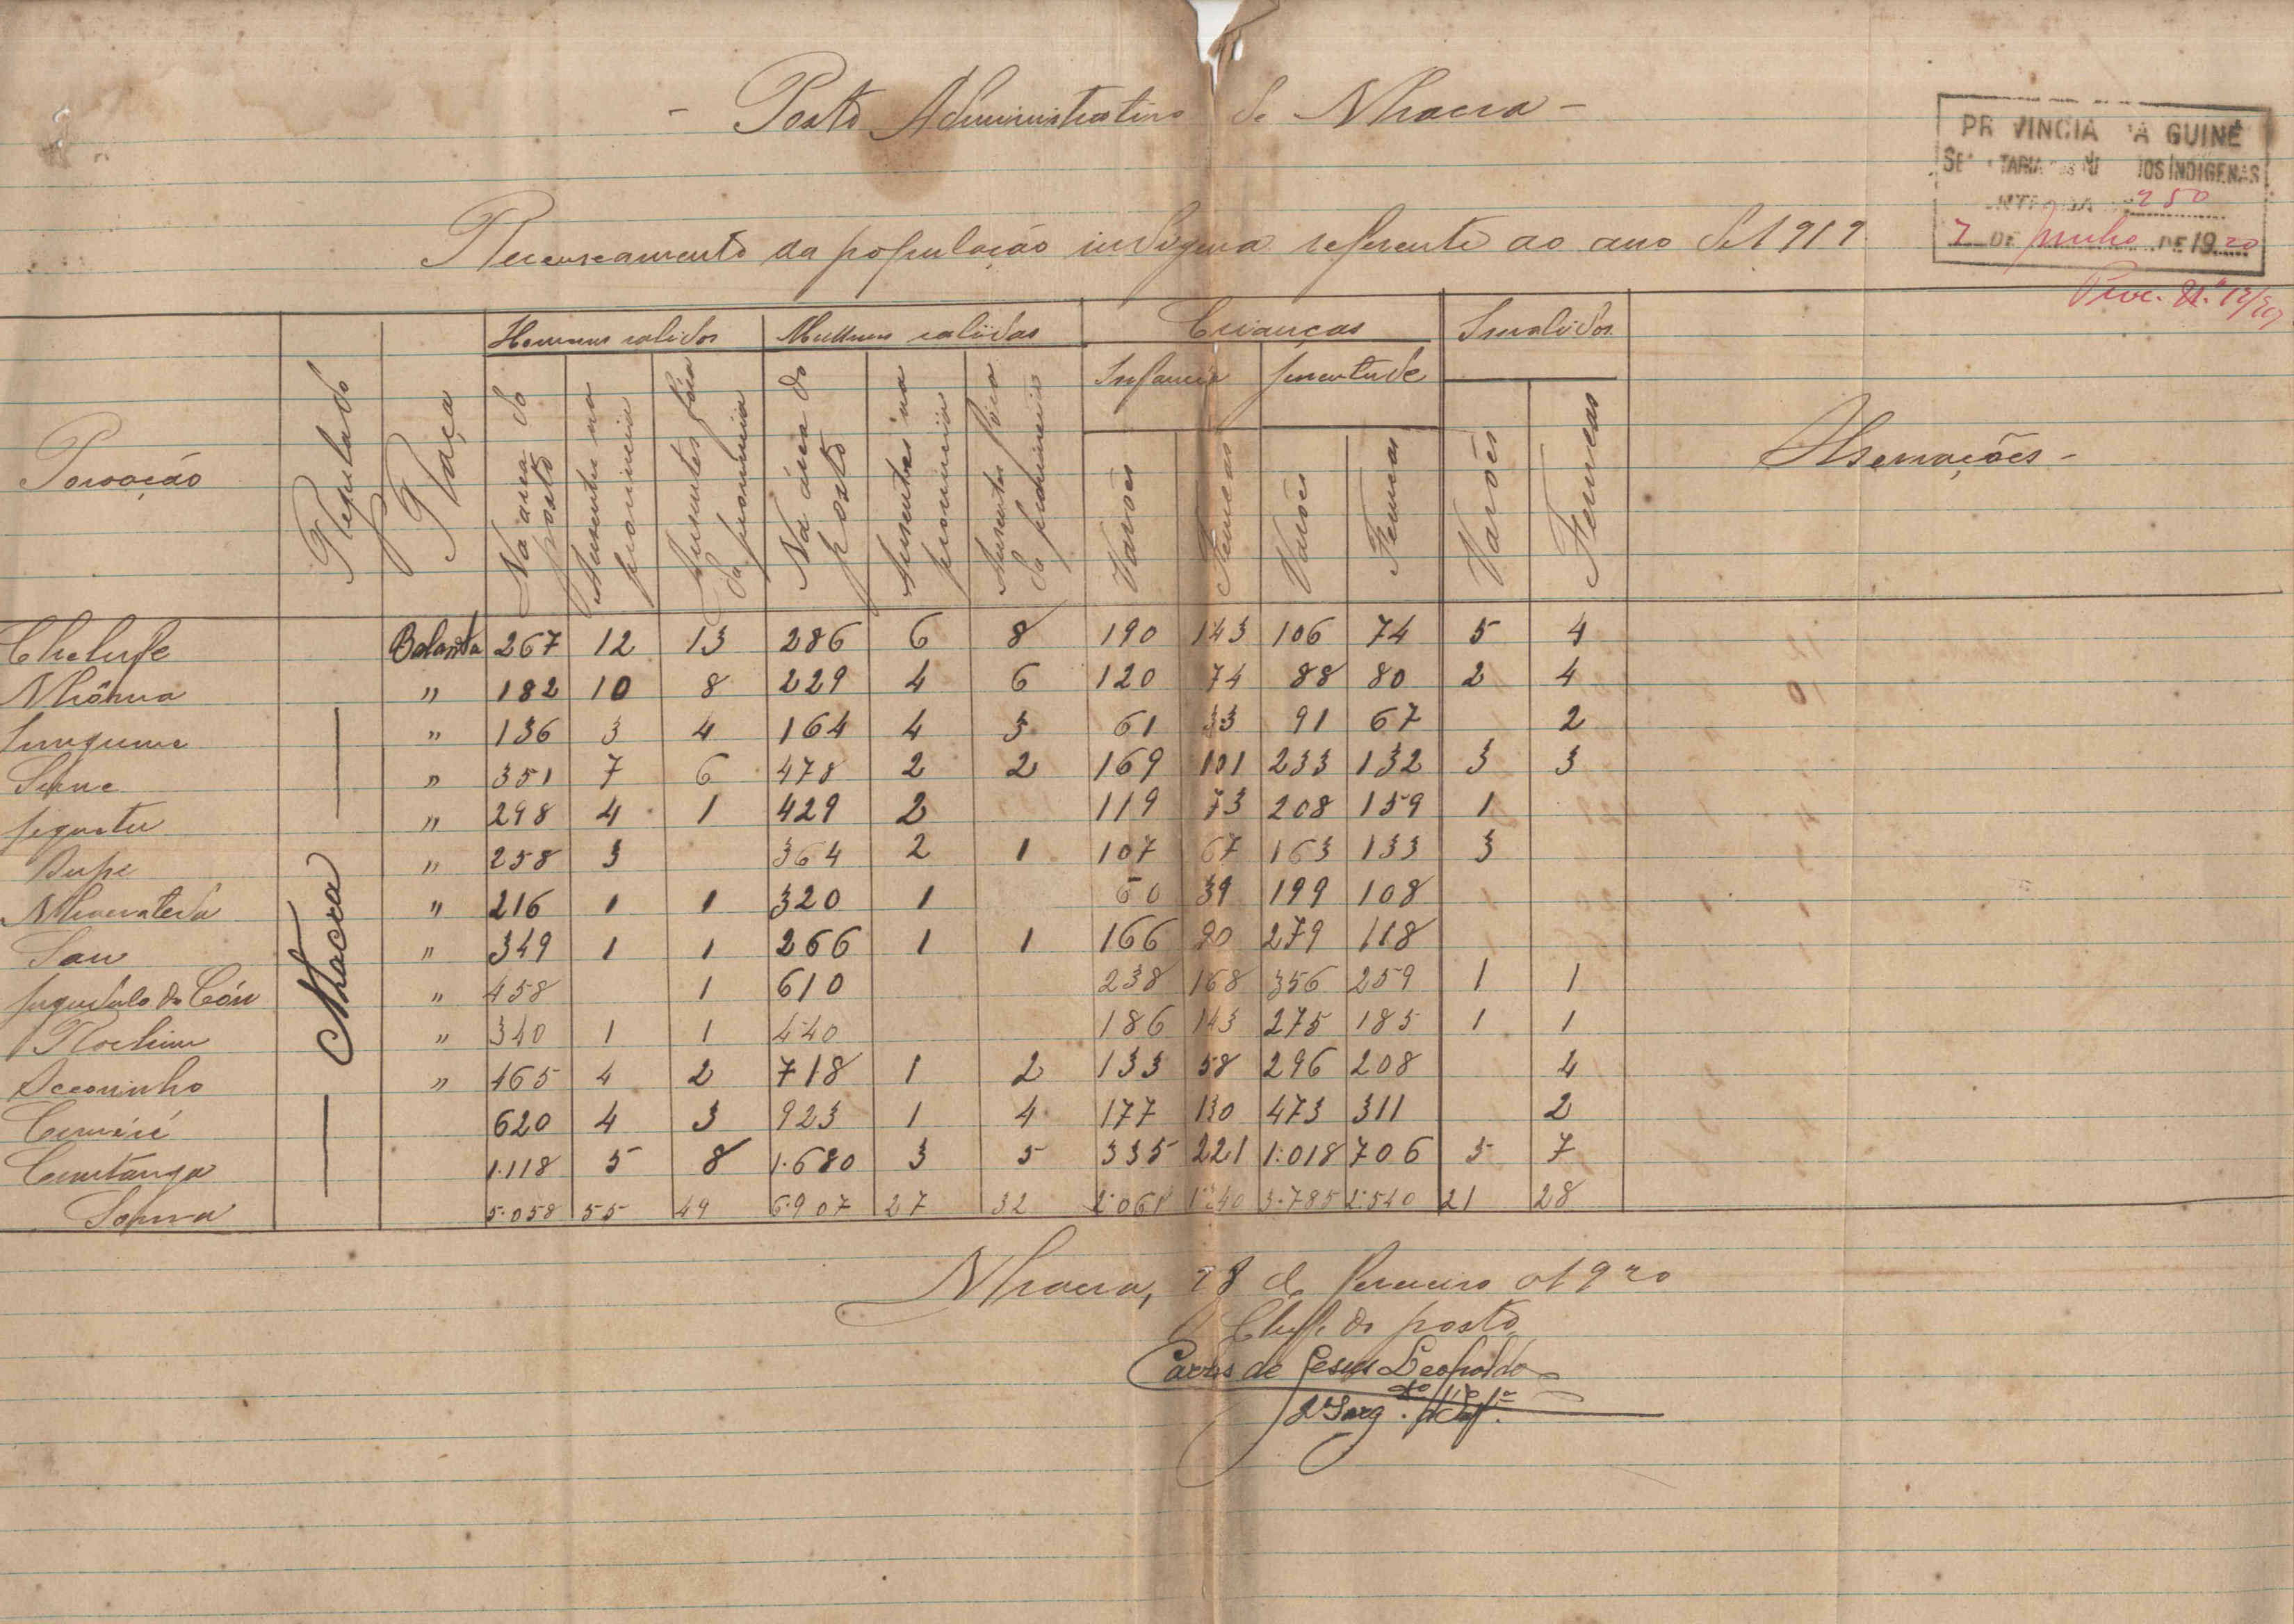 - Posto Administrativo de Nhacra -
PROVINCIA DA GUINÉ
SECRETARIA DOS NEGOCIOS INDÍGENAS
ENTRADA 250
7 DE Junho DE 1920
Proc. N.º 12/20
Recenseamento da população indigena referente ao ano de 1919.
Povoação Regulado Raça Homens validos Mulheres validas Crianças Invalidos Observações -
Infancia Juventude
Na area do posto Ausentes na provincia Ausentes fóra da provincia Na área do posto Ausentes na provincia Ausentes fóra da provincia Varões Femeas Varões Femeas Varões Femeas
Nhacra
Balanta 267 12 13 286 6 8 190 143 106 74 5 4
" 182 10 8 229 4 6 120 74 88 80 2 4
" 136 3 4 164 4 3 61 33 91 67 2
" 351 7 6 478 2 2 169 101 233 132 3 3
" 298 4 1 429 2 119 73 208 159 1
Dupe " 258 3 364 2 1 107 67 163 133 3
" 216 1 1 320 1 60 39 199 108
San " 349 1 1 266 1 1 166 90 279 118
" 458 1 610 238 168 356 259 1 1
" 340 1 1 440 186 143 275 185 1 1
" 465 4 2 718 1 2 133 58 296 208 4
Cumeré 620 4 3 923 1 4 177 130 473 311 2
1.118 5 8 1.680 3 5 335 221 1.018 706 5 7
Soma 5.058 55 49 6.907 27 32 2.061 1.340 3.785 2.540 21 28
Nhacra, 28 de Fevereiro de 1920
O Chefe do posto
Carlos de Jesus Leopoldo
2º Sarg.